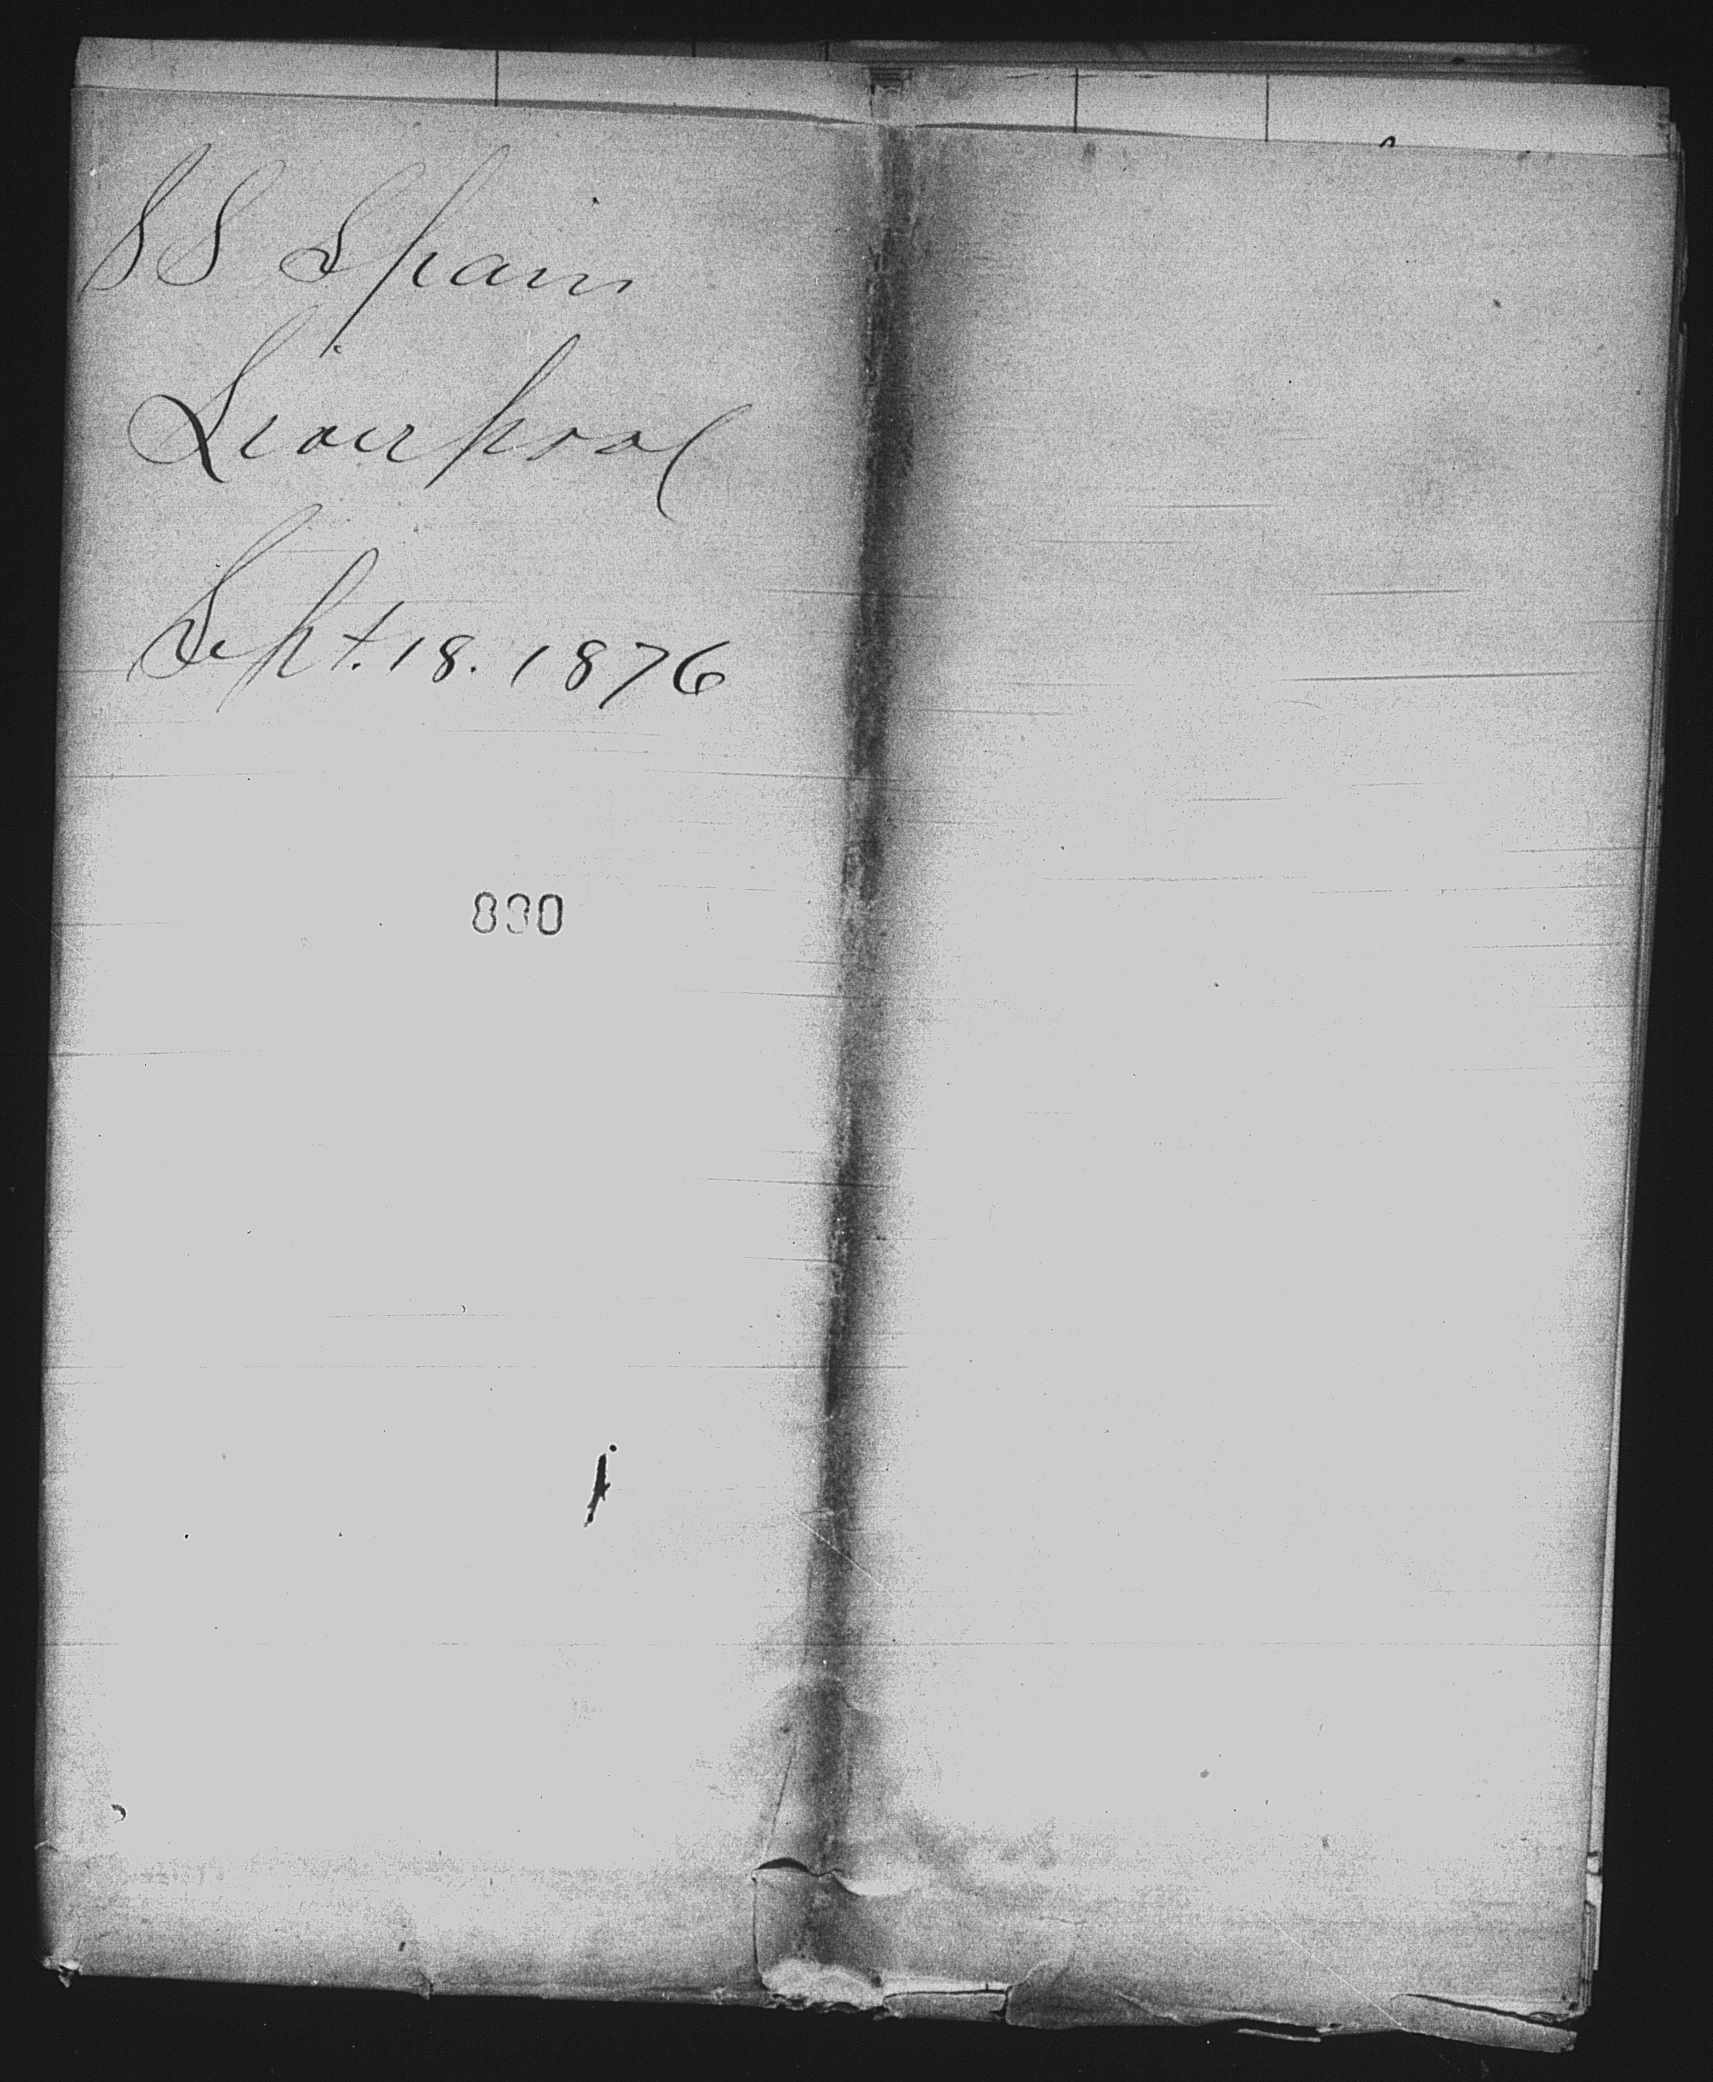 SS Spain
Liverpool
Sept. 18. 1876
830